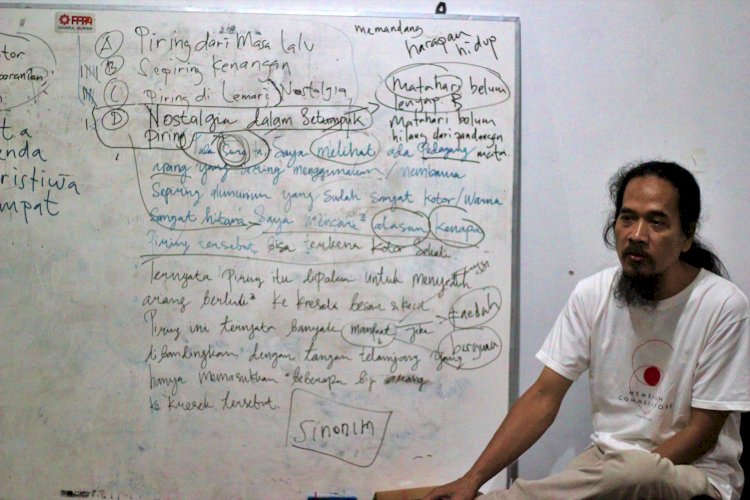 PPPA
DAARUL QUR'AN
A Piring dari Masa lalu
B Sepiring Kenangan
C Piring di Lemari Nostalgia
D Nostalgia dalam Setumpuk
Piring
memandang
harapan
hidup
Matahari belum
lenyap
Matahari belum
hilang dari pandangan
mata
saya melihat ada Pedagang
arang yang sering menggunakan/membawa
Sepiring alumunium yang sudah sangat kotor/warna
Sangat hitam. Saya mencari² alasan kenapa
Piring tersebut bisa terkena kotor sekali.
Ternyata Piring itu dipakai untuk
arang ke kresek besar & kecil
faedah
Piring ini ternyata banyak manfaat jika
berguna
dibandingkan dengan tangan telanjang yang
hanya memasukkan beberapa biji arang
ke kresek tersebut.
Sinonim
ristiwa
mpat